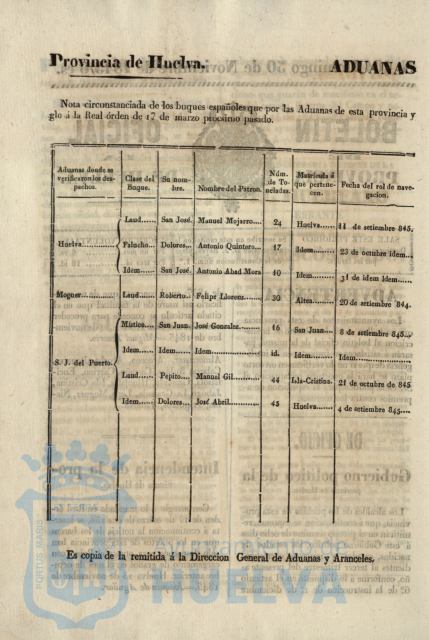 Provincia de Huelva. ADUANAS
Nota circunstanciada de los buques españoles que por las Aduanas de esta provincia y
glo á la Real órden de 17 de marzo próximo pasado.
Aduanas donde se verificaron los despachos. Clase del Buque. Su nombre. Nombre del Patron. Núm. de Toneladas. Matrícula á que pertenecen. Fecha del rol de navegacion.
Huelva Laud San José Manuel Mojarro 24 Huelva 11 de setiembre 845.
Falucho Dolores Antonio Quintero 17 Idem 23 de octubre idem
Idem San José Antonio Abad Mora 10 Idem 31 de idem Idem
Moguer Laud Roberto Felipe Llorens 30 Altea 20 de setiembre 844.
S. J. del Puerto. Místico San Juan José Gonzalez 16 San Juan 8 de setiembre 845
Idem Idem Idem id. Idem Idem
Laud Pepito Manuel Gil 44 Isla-Cristina. 21 de octubre de 845
Idem Dolores José Abril 45 Huelva 4 de setiembre 845
Es copia de la remitida á la Direccion General de Aduanas y Aranceles,
PORTUS MARIS
Ayuntamiento de
HUELVA